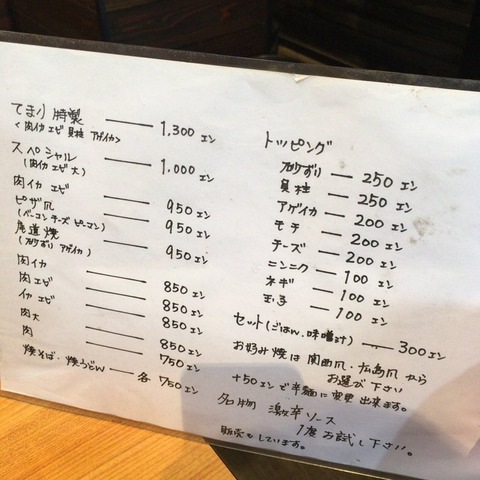 てまり特製 ― 1,300エン
<肉イカエビ貝柱アゲイカ>
スペシャル ― 1,000エン
(肉イカエビ大)
肉イカエビ ― 950エン
ピザ風 ― 950エン
(ベーコンチーズピーマン)
尾道焼 ― 950エン
(砂ずりアゲイカ)
肉イカ ― 850エン
肉エビ ― 850エン
イカエビ ― 850エン
肉大 ― 850エン
肉 ― 750エン
焼そば・焼うどん ― 各750エン
トッピング
砂ずり ― 250エン
貝柱 ― 250エン
アゲイカ ― 200エン
モチ ― 200エン
チーズ ― 200エン
ニンニク ― 100エン
ネギ ― 100エン
玉子 ― 100エン
セット(ごはん、味噌汁) ― 300エン
お好み焼は関西風・広島風から
お選び下さい
+50エンで辛麺に変更出来ます。
名物 激辛ソース
1度お試し下さい。
販売もしています。